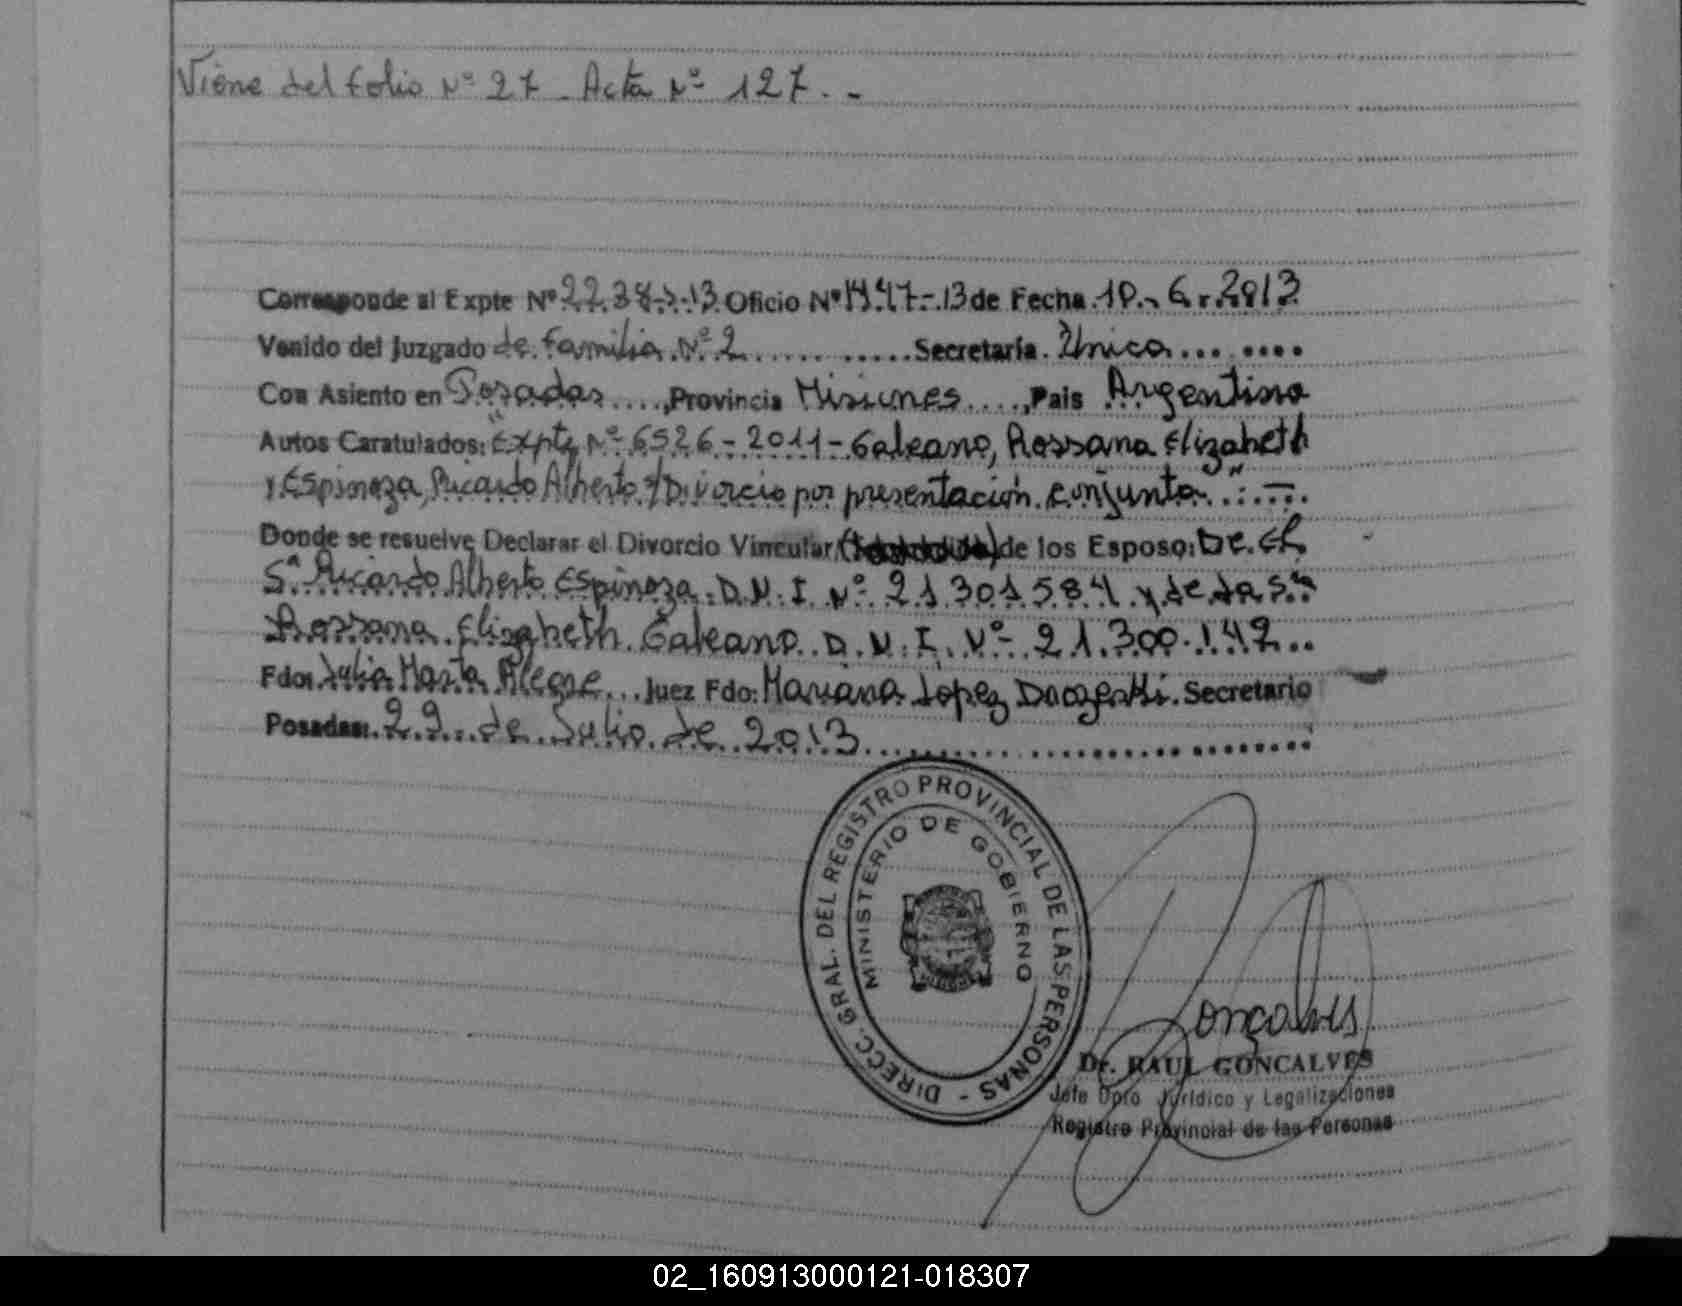 Viene del folio Nº 27 - Acta Nº 127. -
Corresponde al Expte Nº 2238-13 Oficio Nº 1447-13 de Fecha 10-6-2013
Venido del Juzgado de Familia Nº 2 Secretaría Única
Con Asiento en Posadas, Provincia Misiones, Pais Argentina
Autos Caratulados: "Expte Nº 6526-2011-Galeano, Rossana Elizabeth
y Espinoza, Ricardo Alberto s/Divorcio por presentación conjunta"
Donde se resuelve Declarar el Divorcio Vincular de los Esposo: De El
Sº Ricardo Alberto Espinoza. D.N.I Nº 21301584 y de La Sra
Rossana Elizabeth Galeano. D.N.I. Nº 21.300.142
Fdo: Julia Marta Alegre Juez Fdo: Mariana Lopez Secretario
Posadas: 29 de Julio de 2013
DIRECC. GRAL. DEL REGISTRO PROVINCIAL DE LAS PERSONAS -
MINISTERIO DE GOBIERNO
Gonçalves
Dr. RAUL GONCALVES
Jefe Dpto Jurídico y Legalizaciones
Registro Provincial de las Personas
02_160913000121-018307